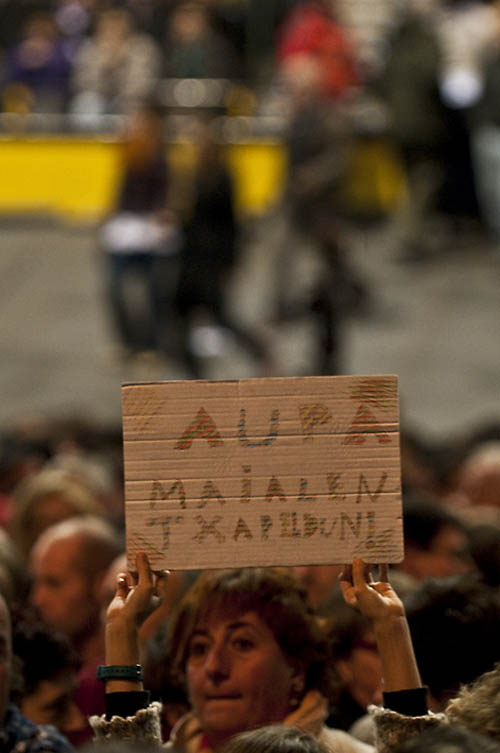 AUPA
MAiALEN
TXAPELDUN!